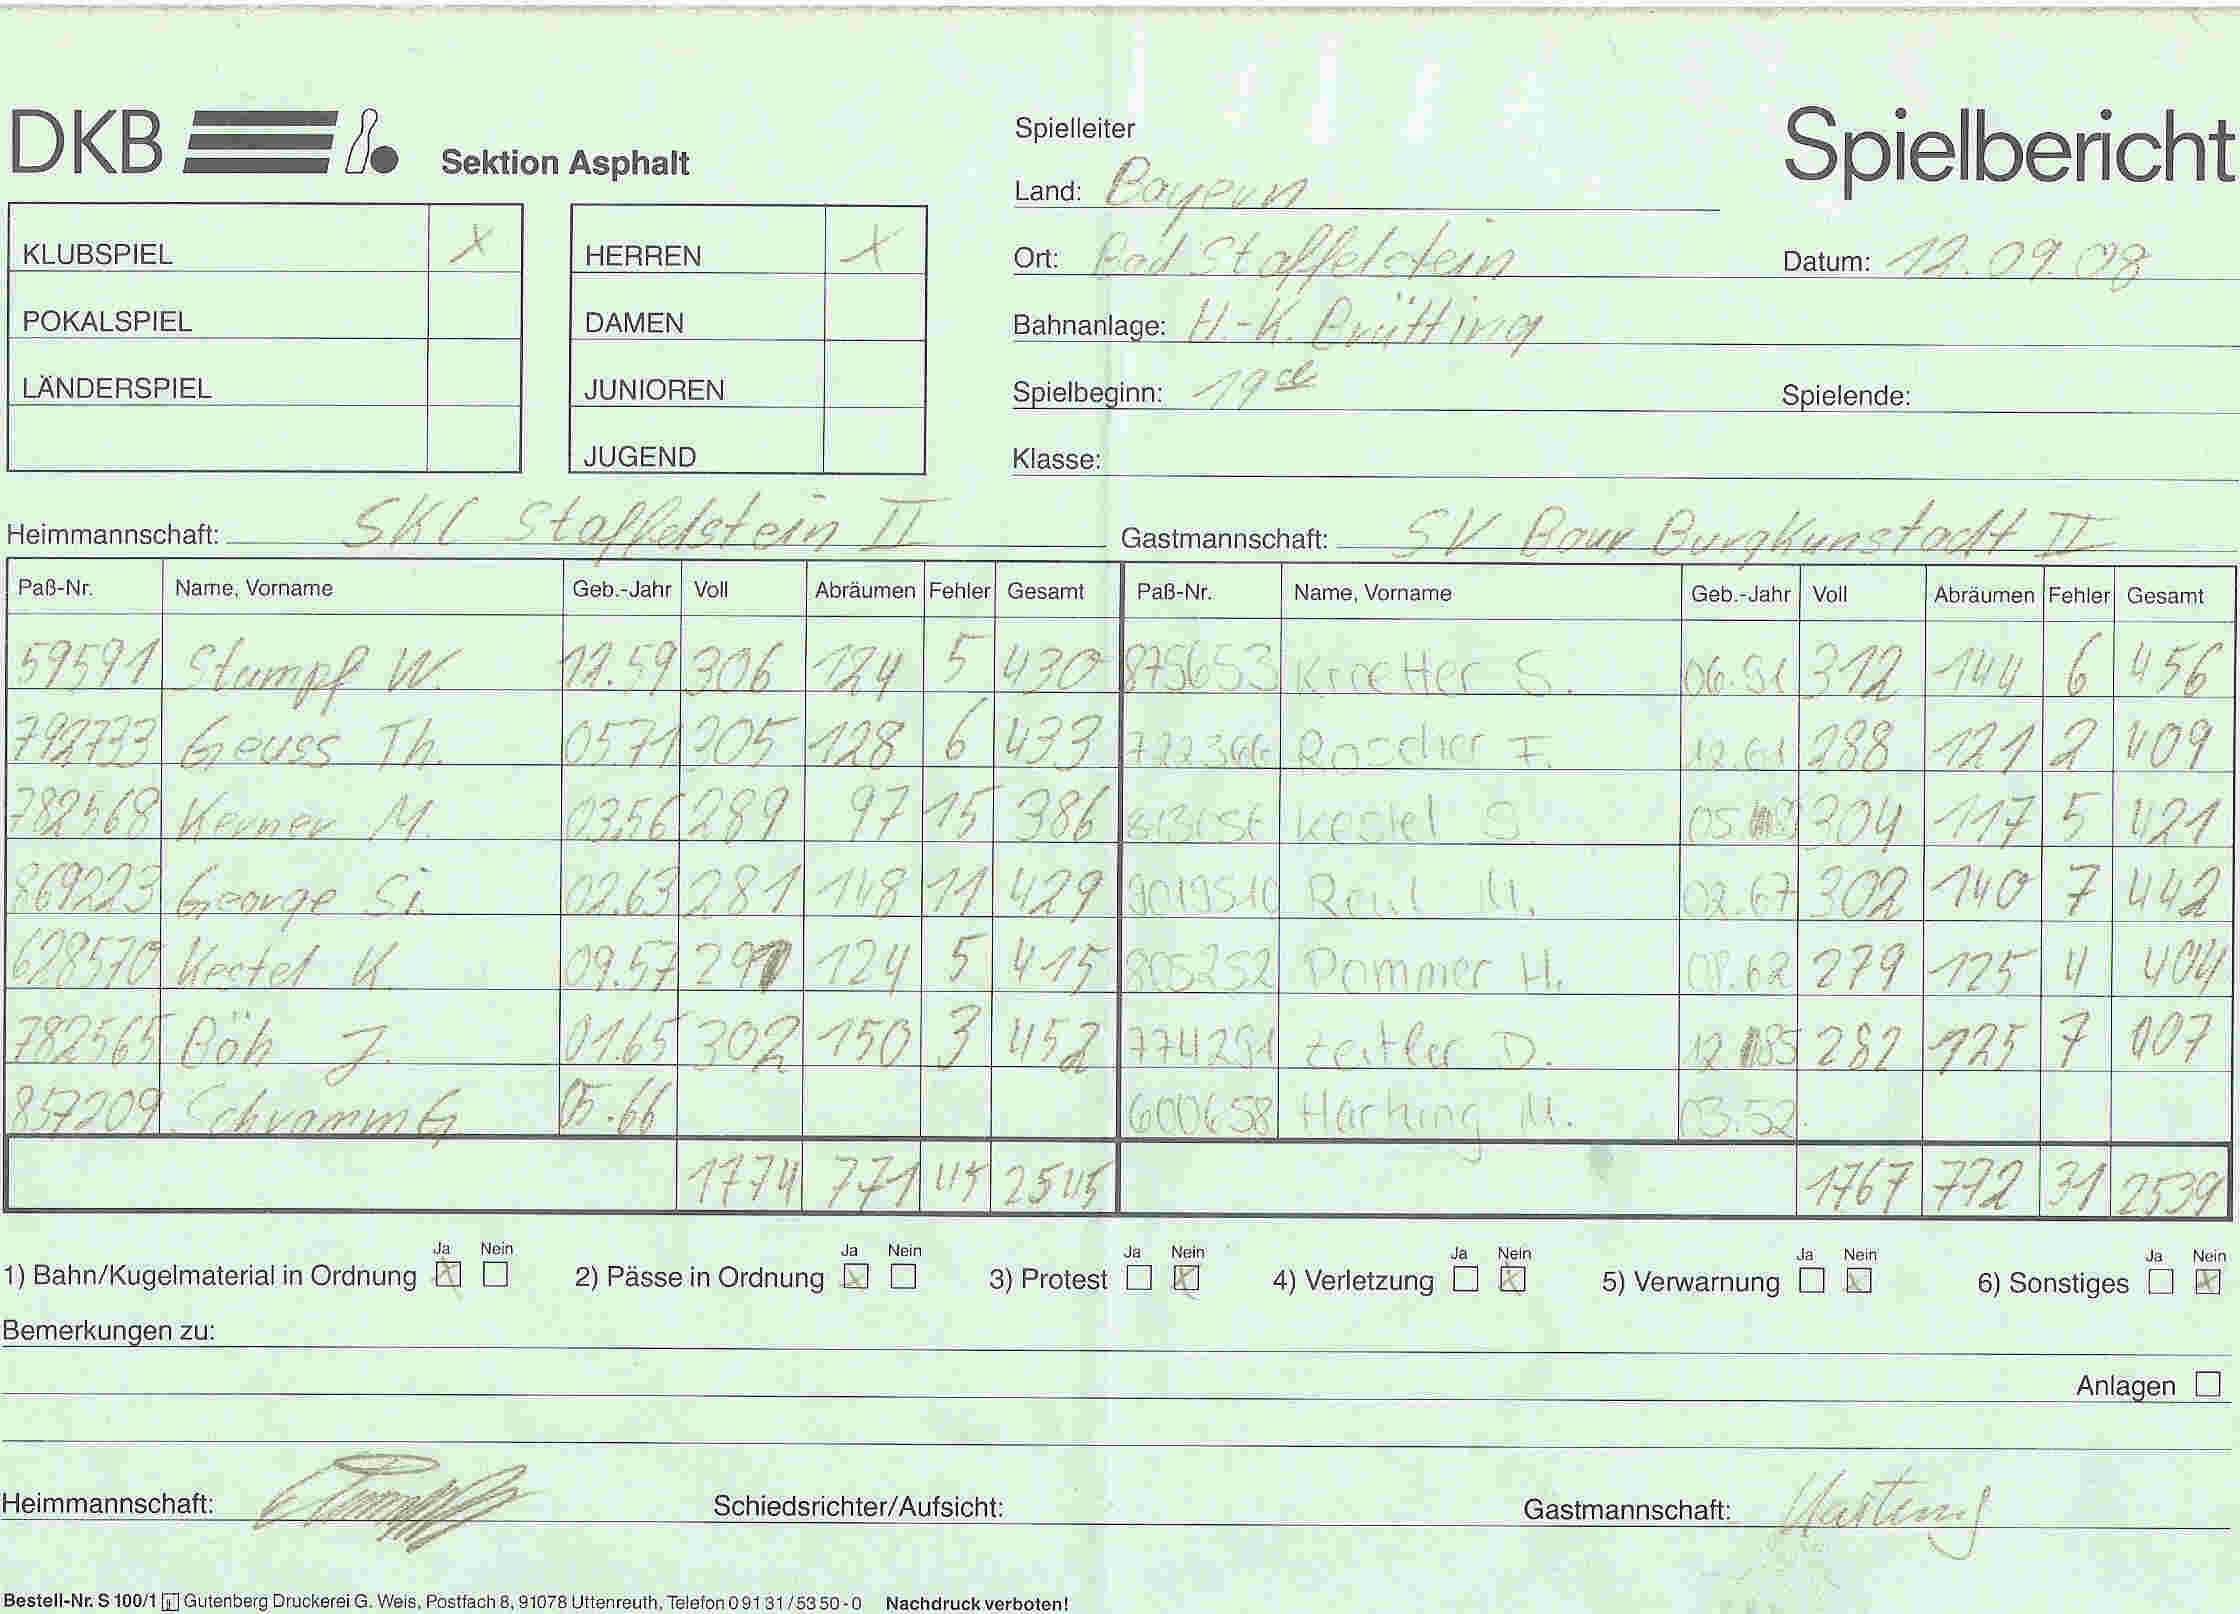 DKB Sektion Asphalt
Spielbericht
KLUBSPIEL X
POKALSPIEL
LÄNDERSPIEL
HERREN X
DAMEN
JUNIOREN
JUGEND
Spielleiter
Land: Bayern
Ort: Bad Staffelstein Datum: 12.09.08
Bahnanlage: H.-K. Brütting
Spielbeginn: 19 Spielende:
Klasse:
Heimmannschaft: SKC Staffelstein II Gastmannschaft: SV Baur Burgkunstadt II
Paß-Nr. Name, Vorname Geb.-Jahr Voll Abräumen Fehler Gesamt Paß-Nr. Name, Vorname Geb.-Jahr Voll Abräumen Fehler Gesamt
59591 Stumpf W. 12.59 306 124 5 430 875653 S. 06.51 312 144 6 456
792733 Geuss Th. 05.71 305 128 6 433 722366 Roscher F. 12.61 288 121 2 409
782568 Kerner M. 03.56 289 97 15 386 Kestel S. 05. 304 117 5 421
869223 George Si. 02.63 281 148 11 429 9019510 Reul M. 02.67 302 140 7 442
628570 Kestel K. 09.57 291 124 5 415 805252 Pommer H. 08.62 279 125 4 404
782565 Böh J. 01.65 302 150 3 452 774291 Zeitler D. 12.85 282 125 7 407
857209 Schramm G 05.66 600658 Hartung M. 03.52
1774 771 45 2545 1767 772 31 2539
Ja Nein Ja Nein Ja Nein Ja Nein Ja Nein Ja Nein
1) Bahn/Kugelmaterial in Ordnung 2) Pässe in Ordnung 3) Protest 4) Verletzung 5) Verwarnung 6) Sonstiges
Bemerkungen zu:
Anlagen
Heimmannschaft: Schiedsrichter/Aufsicht: Gastmannschaft: Hartung
Bestell-Nr. S 100/1 Gutenberg Druckerei G. Weis, Postfach 8, 91078 Uttenreuth, Telefon 0 91 31 / 53 50 - 0 Nachdruck verboten!